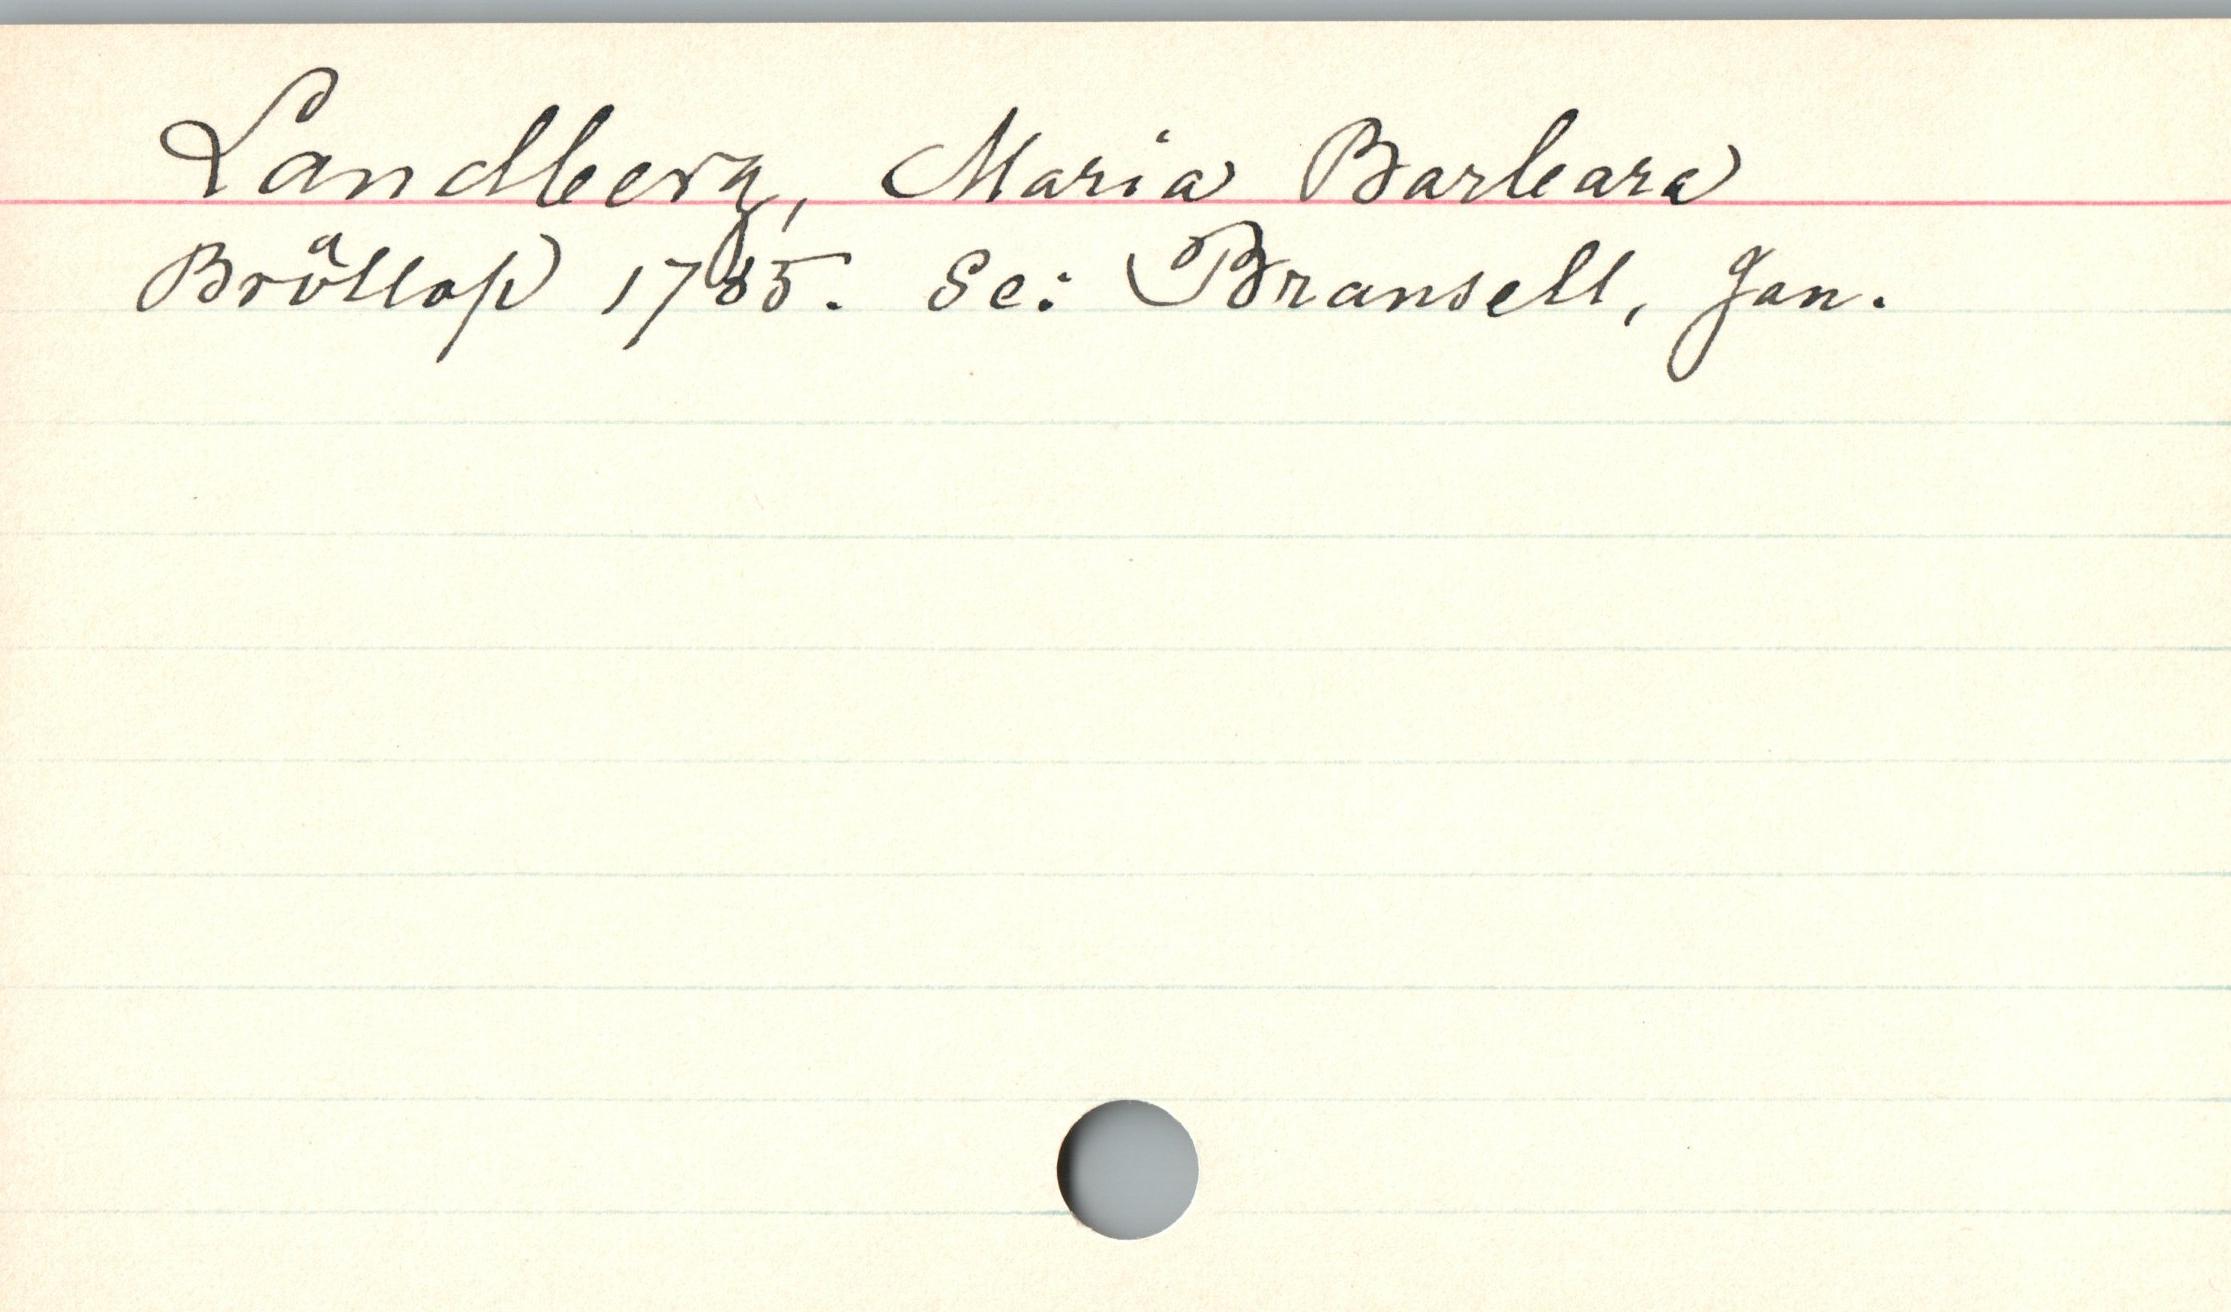 Landberg, Maria Barbara
Bröllop 1785. Se: Bransell, Jan.